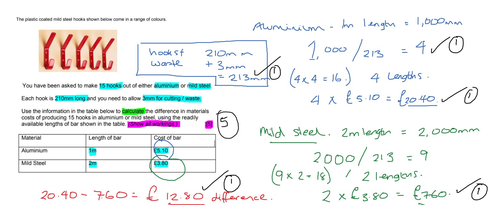 The plastic coated mild steel hooks shown below come in a range of colours.
hooks t 210mm
waste + 3mm
= 213mm 1
You have been asked to make 15 hooks out of either aluminium or mild steel.
Each hook is 210mm long and you need to allow 3mm for cutting / waste.
Use the information in the table below to calculate the difference in materials
costs of producing 15 hooks in aluminium or mild steel, using the readily
available lengths of bar shown in the table. (show all workings.)
5
Material Length of bar Cost of bar
Aluminium 1m £5.10
Mild Steel 2m £3.80
20.40 - 760 = £12.80 difference. 1
Aluminium - 1m length = 1,000mm
1,000 / 213 = 4 1
(4 x 4 = 16) 4 lengths.
4 x £5.10 = £20.40. 1
Mild steel. 2m length = 2,000mm
2000 / 213 = 9
(9 x 2 = 18) / 2 lengths
2 x £3.80 = £760. 1